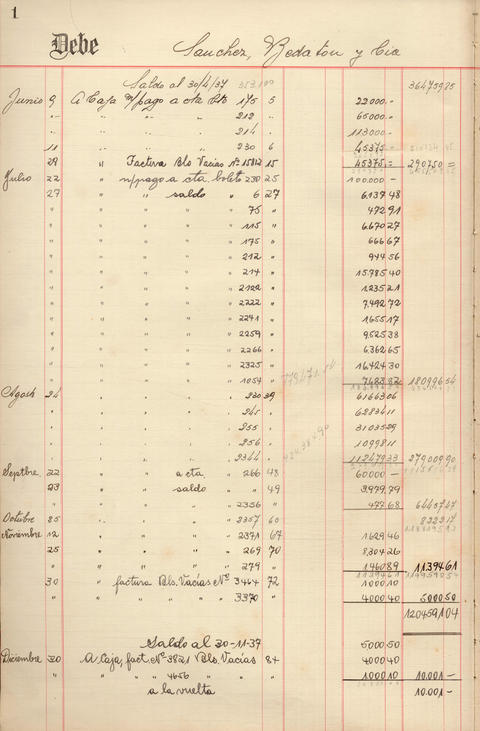 1
Debe Sanchez, Bedaton y Cia
Saldo al 30/4/37 353.100 36475925
Junio 9 A Caja m/pago a cta blto 175 5 22000.-
" " " " 212 " 65000.-
" " " 214 " 113000.-
11 " " " 230 6 45375.-
29 " " Factura Bls Vacías Nº 15812 15 45375.- 290750 =
Julio 22 " " n/pago a cta boleto 230 25 100000.-
27 " " " saldo " 6 27 6.137 48
" " " " " 75 " 472 91
" " " " " 115 " 6.670 27
" " " " " 175 " 666 67
" " " " " 212 " 944 56
" " " " " 214 " 15.785 40
" " " " " 2122 " 1.235 21
" " " " " 2222 " 7.492 72
" " " " " 2241 " 1.655 17
" " " " " 2259 " 9.525 38
" " " " " 2266 " 6.362 65
" " " " " 2325 " 16.424 30
" " " " " 1054 " 7683 82 18099654
Agosto 24 " " " " 230 39 61663 06
" " " " " 245 " 62834 11
" " " " " 255 " 31035 29
" " " " " 256 " 10998 11
" " " " " 2344 " 112479 33 27900990
Septbre. 22 " " " a cta. " 266 48 60000 -
23 " " " saldo " " 49 3.979 79
" " " " " 2356 " 477 68 6445747
Octubre 25 " " " " 2357 60 822217
Noviembre 12 " " " " 2371 67 1629 46
25 " " " " 269 70 8.304 26
" " " " 279 " 1460 89 1139461
30 " " factura Bls. Vacías Nº 3464 72 1000 10
" " " " " 3370 " 4000 40 500050
120459104
Saldo al 30-11-37 5000 50
Diciembre 30 A Caja, fact. Nº 3821 Bls. Vacías 84 4000 40
" " " 4656 " " " 1000 10 10.001 -
a la vuelta 10.001 -